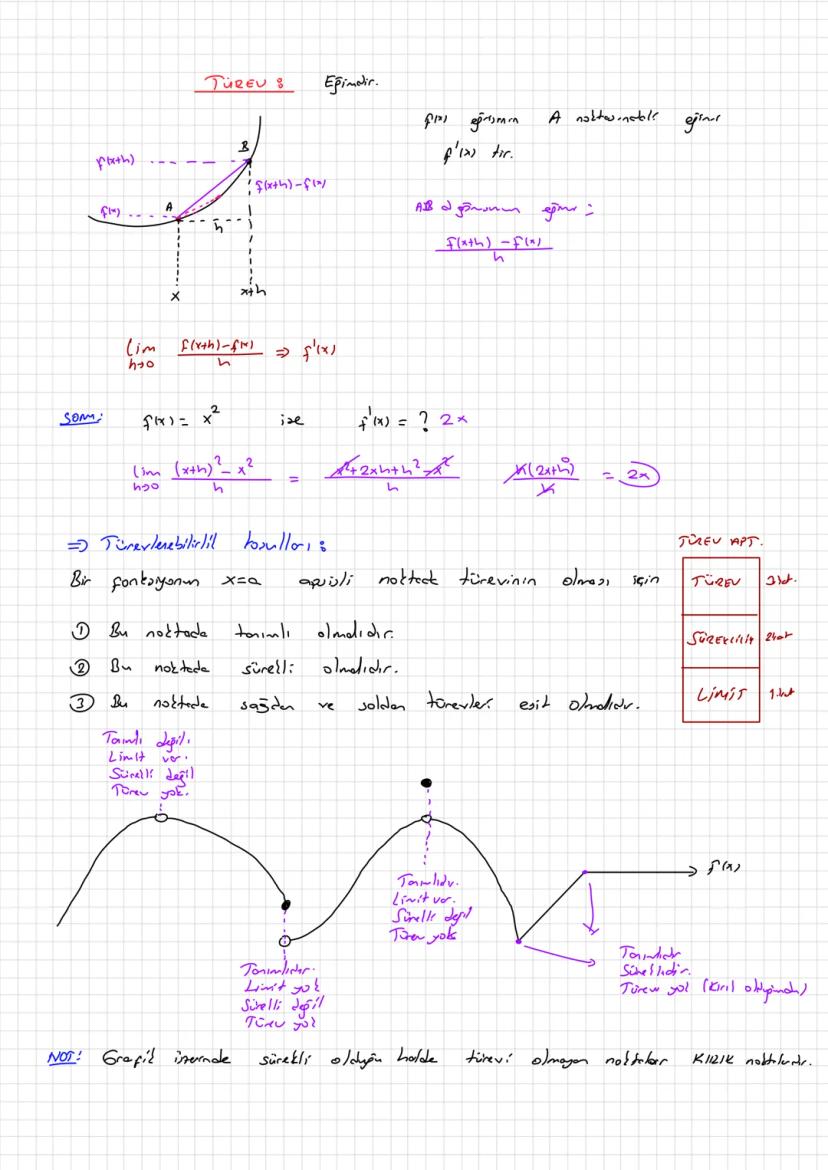 TÜREV : Eğimdir.
f(x) eğrisinin A noktasındaki eğimi
f'(x) tir.
B
f(x+h)
f(x+h)-f(x)
A
f(x)
h
x
x+h
AB doğrusunun eğimi :
f(x+h) - f(x)
h
lim f(x+h)-f(x) ⇒ f'(x)
h→0 h
SORU: f(x) = x² ise f'(x) = ? 2x
lim (x+h)² - x² = x²+2xh+h²-x² h(2x+h) = 2x
h→0 h h h
0
⇒ Türevlenebilirlik koşulları :
TÜREV APT.
Bir fonksiyonun x=a apsisli noktada türevinin olması için
TÜREV 3.kat.
① Bu noktada tanımlı olmalıdır.
SÜREKLİLİK 2.kat
② Bu noktada sürekli olmalıdır.
LİMİT 1.kat
③ Bu noktada sağdan ve soldan türevleri eşit olmalıdır.
Tanımlı değil.
Limit var.
Sürekli değil
Türev yok.
Tanımlıdır.
Limit yok
Sürekli değil
Türev yok
Tanımlıdır.
Limit var.
Sürekli değil
Türev yok
f(x)
Tanımlıdır
Süreklidir.
Türev yok (Kırık olduğundan)
NOT: Grafik üzerinde sürekli olduğu halde türevi olmayan noktalar KIRIK noktalardır.